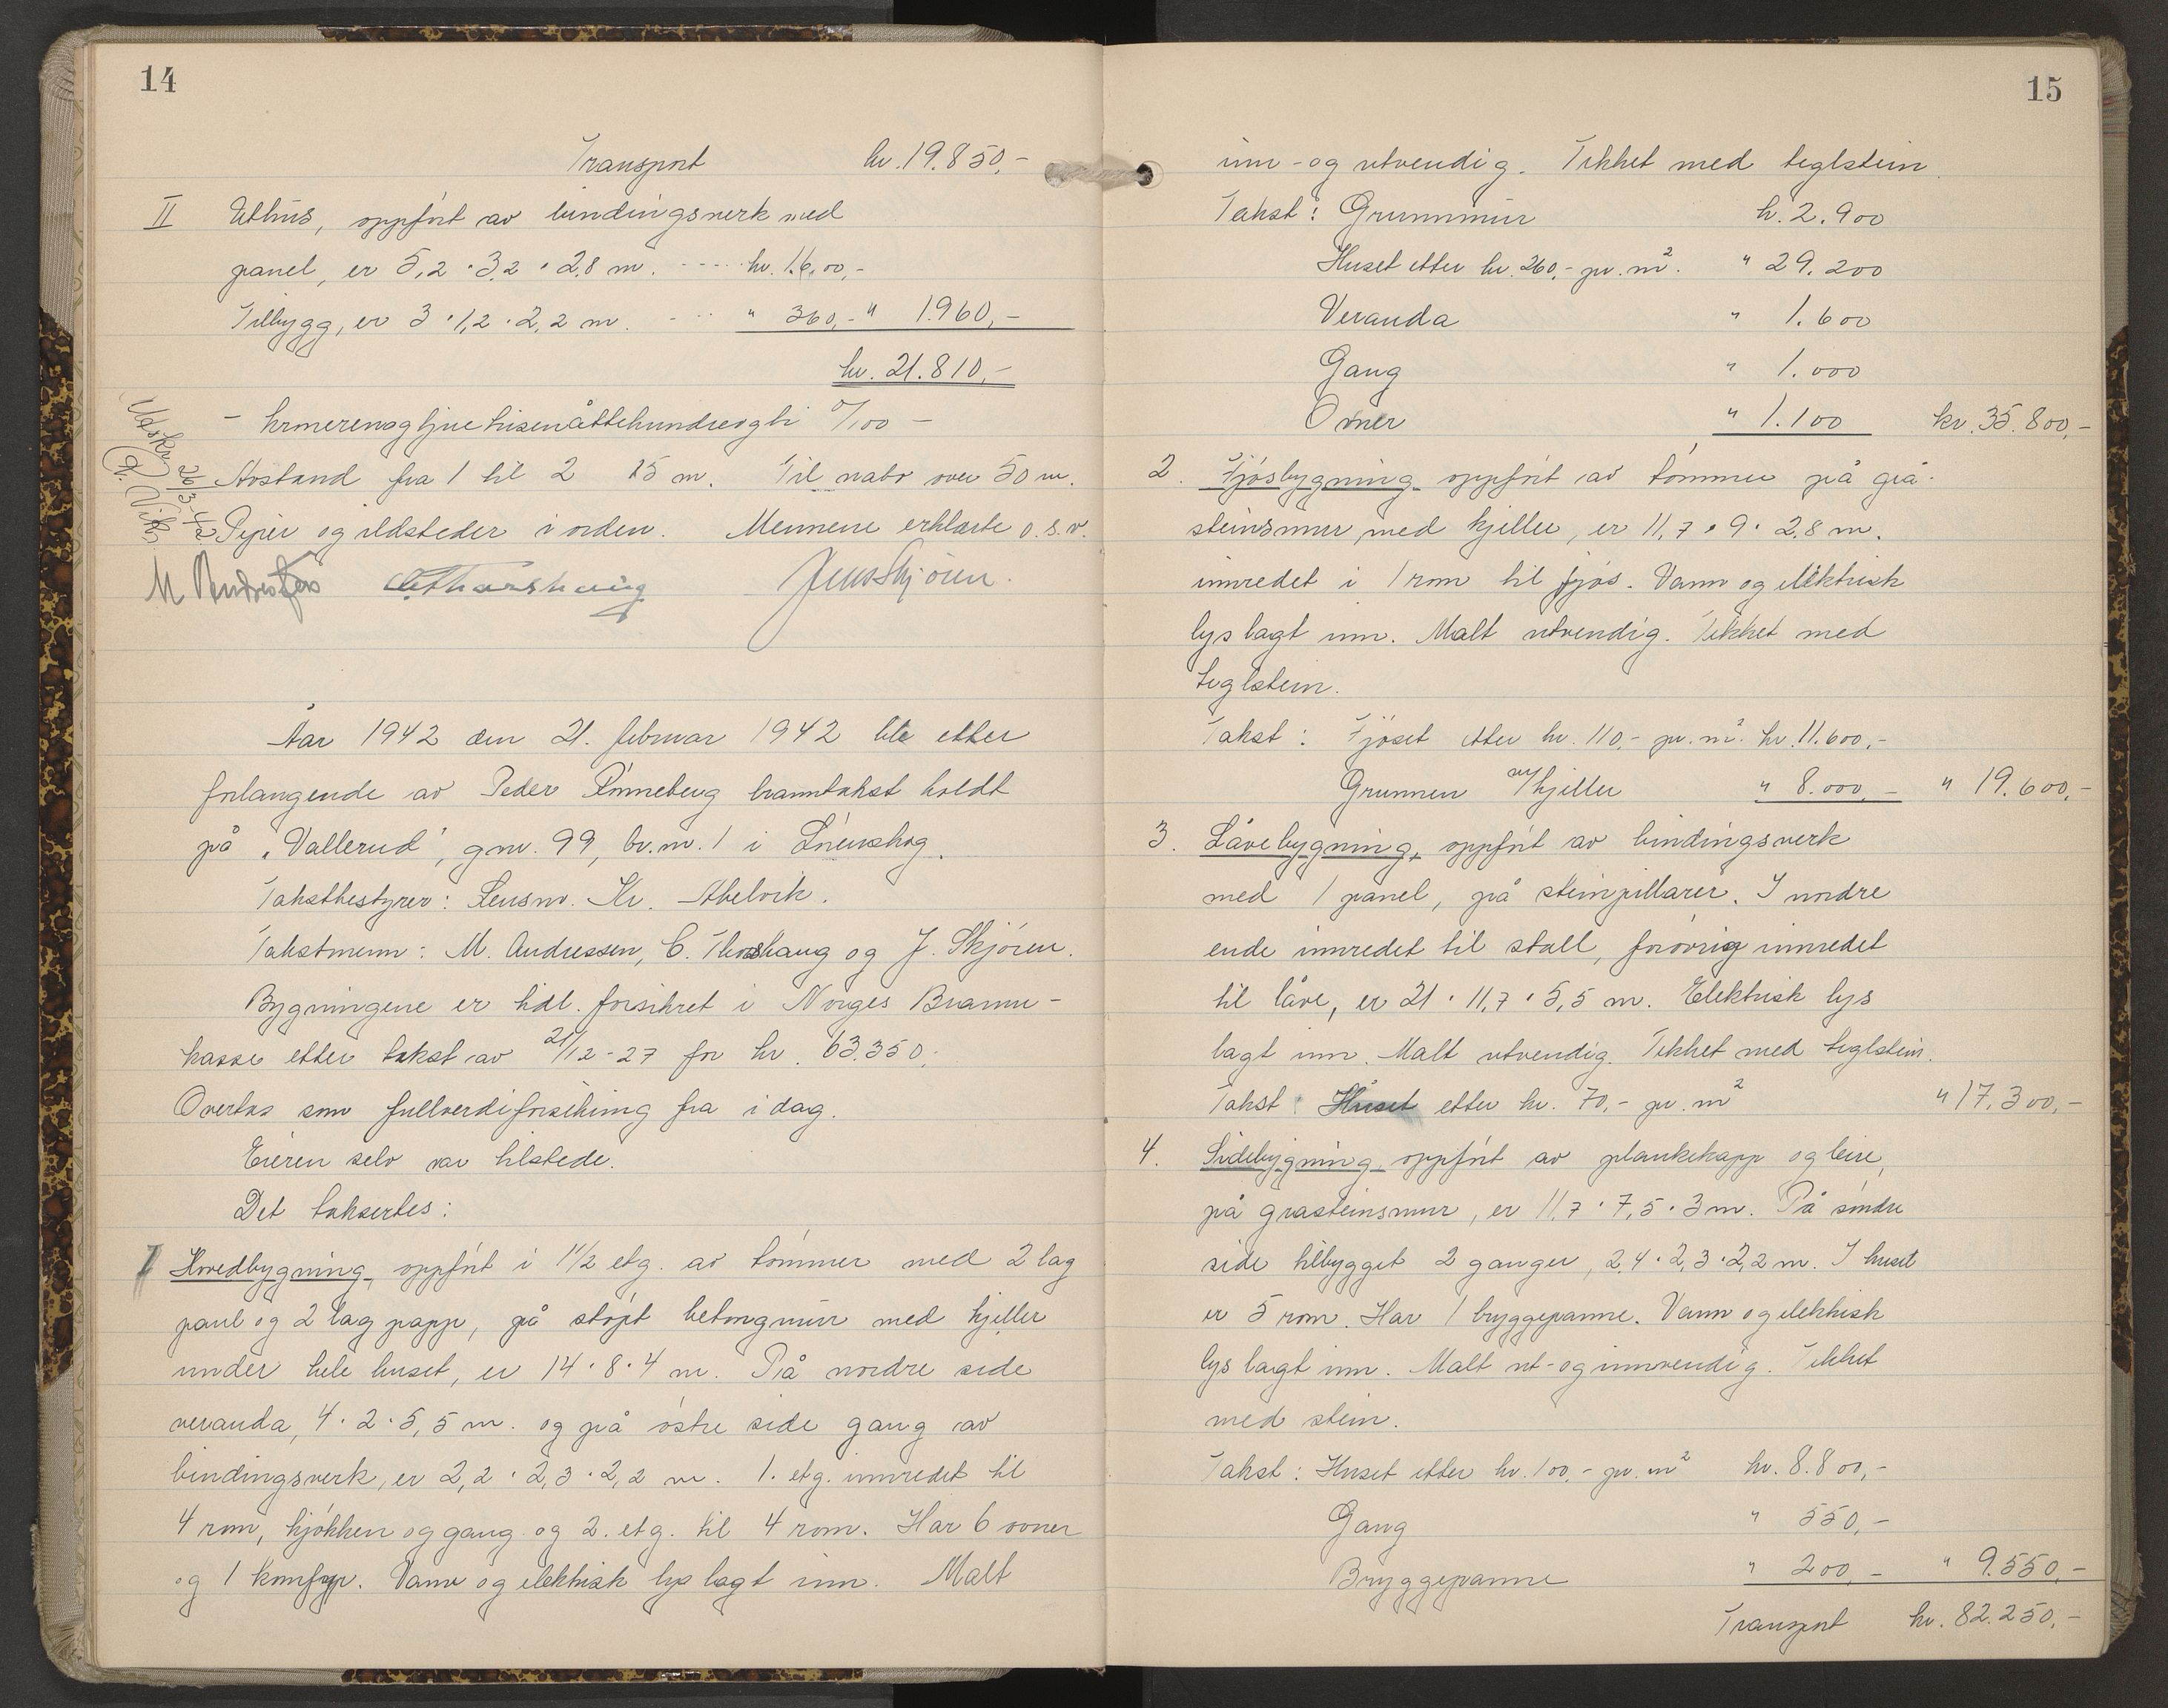 14
Transport kr. 19.850,-
II Uthus, oppført av bindingsverk med
panel, er 5,2 · 3,2 · 2,8 m. ---- kr. 1600,-
Tilbygg, er 3 · 1,2 · 2,2 m. - -- " 360,- " 1.960,-
kr. 21.810,-
- kronerenogtjuetusenåttehundreogti 0/100 -
Avstand fra 1 til 2 25 m. Til nabo over 50 m.
Piper og ildsteder i orden. Mennene erklærte o.s.v.
Utskr. 26/3-42
M Andressen C Thorshaug Jens Skjøren.
År 1942 den 21. februar 1942 ble etter
forlangende av Peder Rønneberg branntakst holdt
på "Vallerud", gnr. 99, br.nr. 1 i Lørenskog.
Takstbestyrer: Lensm. Kr. Abelvik.
Takstmenn: M. Andressen, C. Thorshaug og J. Skjøren.
Bygningene er tidl. forsikret i Norges Brann-
kasse etter takst av 21/12-27 for kr. 63.350,-
Overtas som fullverdiforsikring fra idag.
Eieren selv var tilstede.
Det taksertes:
1 Hovedbygning, oppført i 1 1/2 etg. av tømmer med 2 lag
panel og 2 lag papp, på støpt betongmur med kjeller
under hele huset, er 14 · 8 · 4 m. På nordre side
veranda, 4 · 2 · 5,5 m. og på østre side gang av
bindingsverk, er 2,2 · 2,3 · 2,2 m. 1. etg. innredet til
4 rom, kjøkken og gang og 2. etg. til 4 rom. Har 6 ovner
og 1 komfyr. Vann og elektrisk lys lagt inn. Malt
15
inn- og utvendig. Tekket med teglstein.
Takst: Grunnmur kr. 2.900
Huset etter kr. 260,- pr. m². " 29.200
Veranda " 1.600
Gang " 1.000
Ovner " 1.100 kr. 35.800,-
2. Fjøsbygning, oppført av tømmer på grå-
steinsmur med kjeller, er 11,7 · 9 · 2,8 m.
innredet i 1 rom til fjøs. Vann og elektrisk
lys lagt inn. Malt utvendig. Tekket med
teglstein.
Takst: Fjøset etter kr. 110,- pr. m². kr. 11.600,-
Grunnen m/kjeller " 8.000,- " 19.600,-
3. Låvebygning, oppført av bindingsverk
med 1 panel, på steinpillarer. I nordre
ende innredet til stall, forøvrig innredet
til låve, er 21 · 11,7 · 5,5 m. Elektrisk lys
lagt inn. Malt utvendig. Tekket med teglstein.
Takst: Huset etter kr. 70,- pr. m² " 17.300,-
4. Sidebygning, oppført av plankekapp og leire,
på gråsteinsmur, er 11,7 · 7,5 · 3 m. På søndre
side tilbygget 2 ganger, 2,4 · 2,3 · 2,2 m. I huset
er 5 rom. Har 1 bryggepanne. Vann og elektrisk
lys lagt inn. Malt ut- og innvendig. Tekket
med stein.
Takst: Huset etter kr. 100,- pr. m² kr. 8.800,-
Gang " 550,-
Bryggepanne " 200,- " 9.550,-
Transport kr. 82.250,-